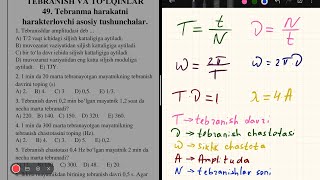 TEBRANISH VA TO'LQINLAR
49. Tebranma harakatni
harakterlovchi asosiy tushunchalar.
1. Tebranishlar amplitudasi deb ...
A) T/2 vaqt ichidagi siljish kattaligiga aytiladi.
B) muvozanat vaziyatidan eng kichik siljish kattaligiga aytiladi.
C) bir to'la davr ichida siljish kattaligiga aytiladi.
D) muvozanat vaziyatidan eng katta siljish kattaligining
moduli. E) TJY
2. 1 min da 20 marta tebranayotgan mayatnikning tebranish
davrini toping (s).
A) 2. B) 4. C) 3. D) 0,5. E)
3. Tebranish davri 0,2 min bo'lgan mayatnik 1,2 soat da
necha marta tebranadi?
A) 220. B) 140. C) 150. D) 320. E) 360.
4. 1 min da 300 marta tebranayotgan mayatnikning
tebranish chastotasini toping (Hz).
A) 2. B) 4. C) 3. D) 5. E) 1.
5. Tebranish chastotasi 0,4 Hz bo'lgan mayatnik 2 min da
necha marta tebranadi?
C) 300. D) 48. E) 20.
birining tebranish davri 0,5 s. Agar
T = t/N
ν = N/t
ω = 2π/T
ω = 2πν
T ν = 1
x = 4A
T = tebranish davri
ν = tebranish chastotasi
ω = siklik chastota
A = Amplituda
N = tebranishlar soni